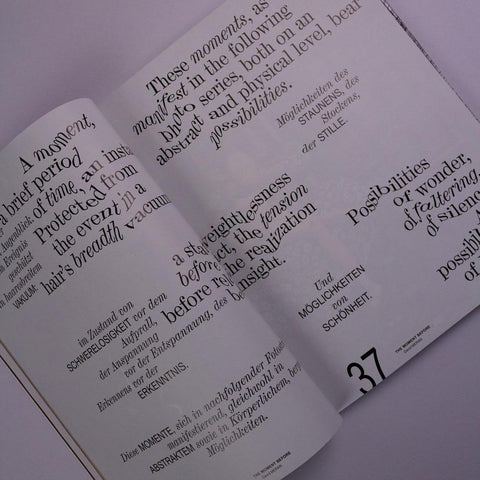 A moment,
a brief period
of time, an inst
Protected from
the event in a
hair's breadth vacuum
Augenblick
Ereignis
geschützt
haaresbreitem
VAKUUM:
before, the tension
before the realization
insight.
im Zustand von
SCHWERELOSIGKEIT vor dem
Aufprall,
der Anspannung
vor der Entspannung, des
Erkennens vor der
ERKENNTNIS.
Diese MOMENTE, sich in nachfolgender
manifestierend, gleichwohl in
ABSTRAKTEM sowie in Körperlichem,
Möglichkeiten.
THE MOMENT BEFORE
These moments, as
manifest in the following
photo series, both on an
abstract and physical level, bear
possibilities.
Möglichkeiten des
STAUNENS, des
Stockens,
der STILLE.
Possibilities
of wonder,
of faltering,
of silence
possibil
of
Und
MÖGLICHKEITEN
von
SCHÖNHEIT.
THE MOMENT BEFORE
37